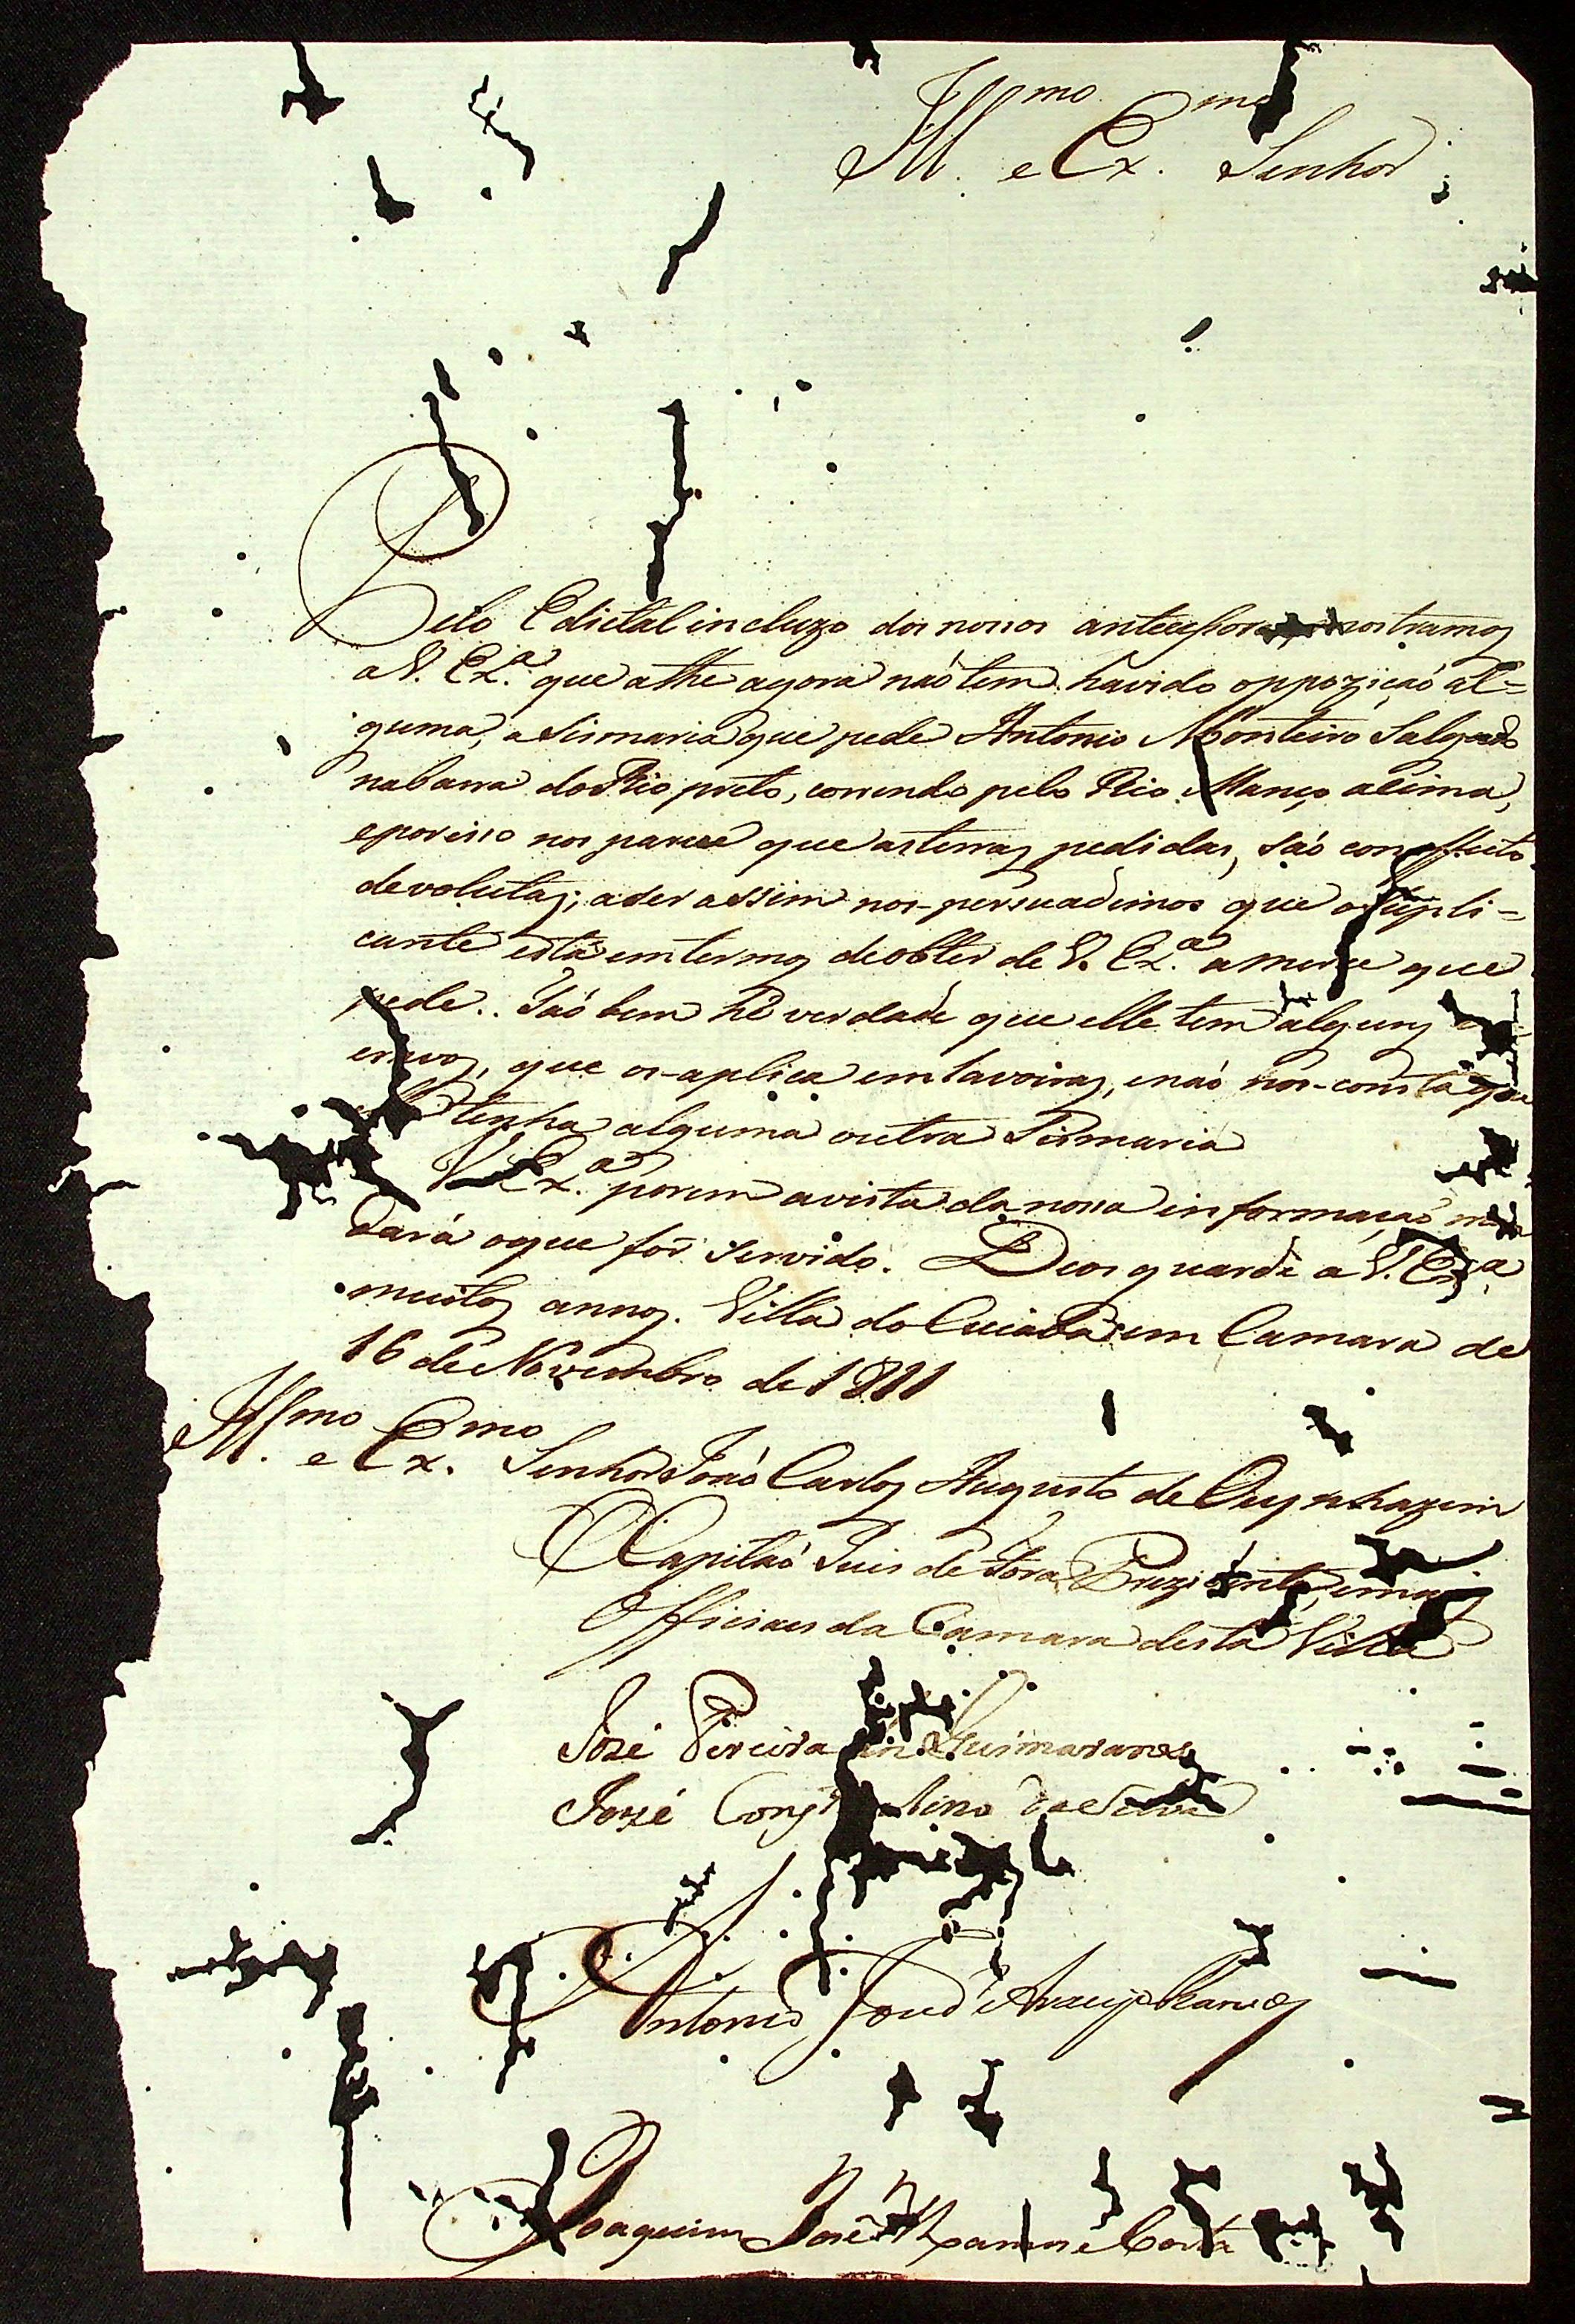 Ill.mo e Ex.mo Senhor
Pelo Edictal incluzo dos nossos antecessores mostramos
a V. Ex.a que athe agora naõ tem havido oppoziçaõ al=
guma, a Sismaria que pede Antonio Monteiro Salgado
nabarra do Rio preto, correndo pelo Rio Manço aSima,
eporisso nos parece que asterras pedidas, saõ comeffeito
devolutas; aser assim nos-persuadimos que oSupli=
cante está emtermos deobter de V. Ex.a amerce que
pede. Taõ bem hé verdade que elle tem alguns
cravos, que os-aplica emlavoiras, enaõ nos-consta que
elle tenha alguma outra Sismaria
V. Ex.a porem avista da nossa informaçaõ man
dará oque for servido. Deos guarde a V. Ex.a
muitos annos. Villa do Cuiabá em Camara de
16 de Novembro de 1811
Ill.mo e Ex.mo Senhor Joaõ Carlos Augusto de Oeynhazem
O Capitaõ Juis de Fora Prezidente, emais
Officiaes da Camara desta Villa
José Pereira Guimaraes
Jozé Const ntino da Silva
Antonio Jozé d'Araujo
Joaquim José Ramos e Costa